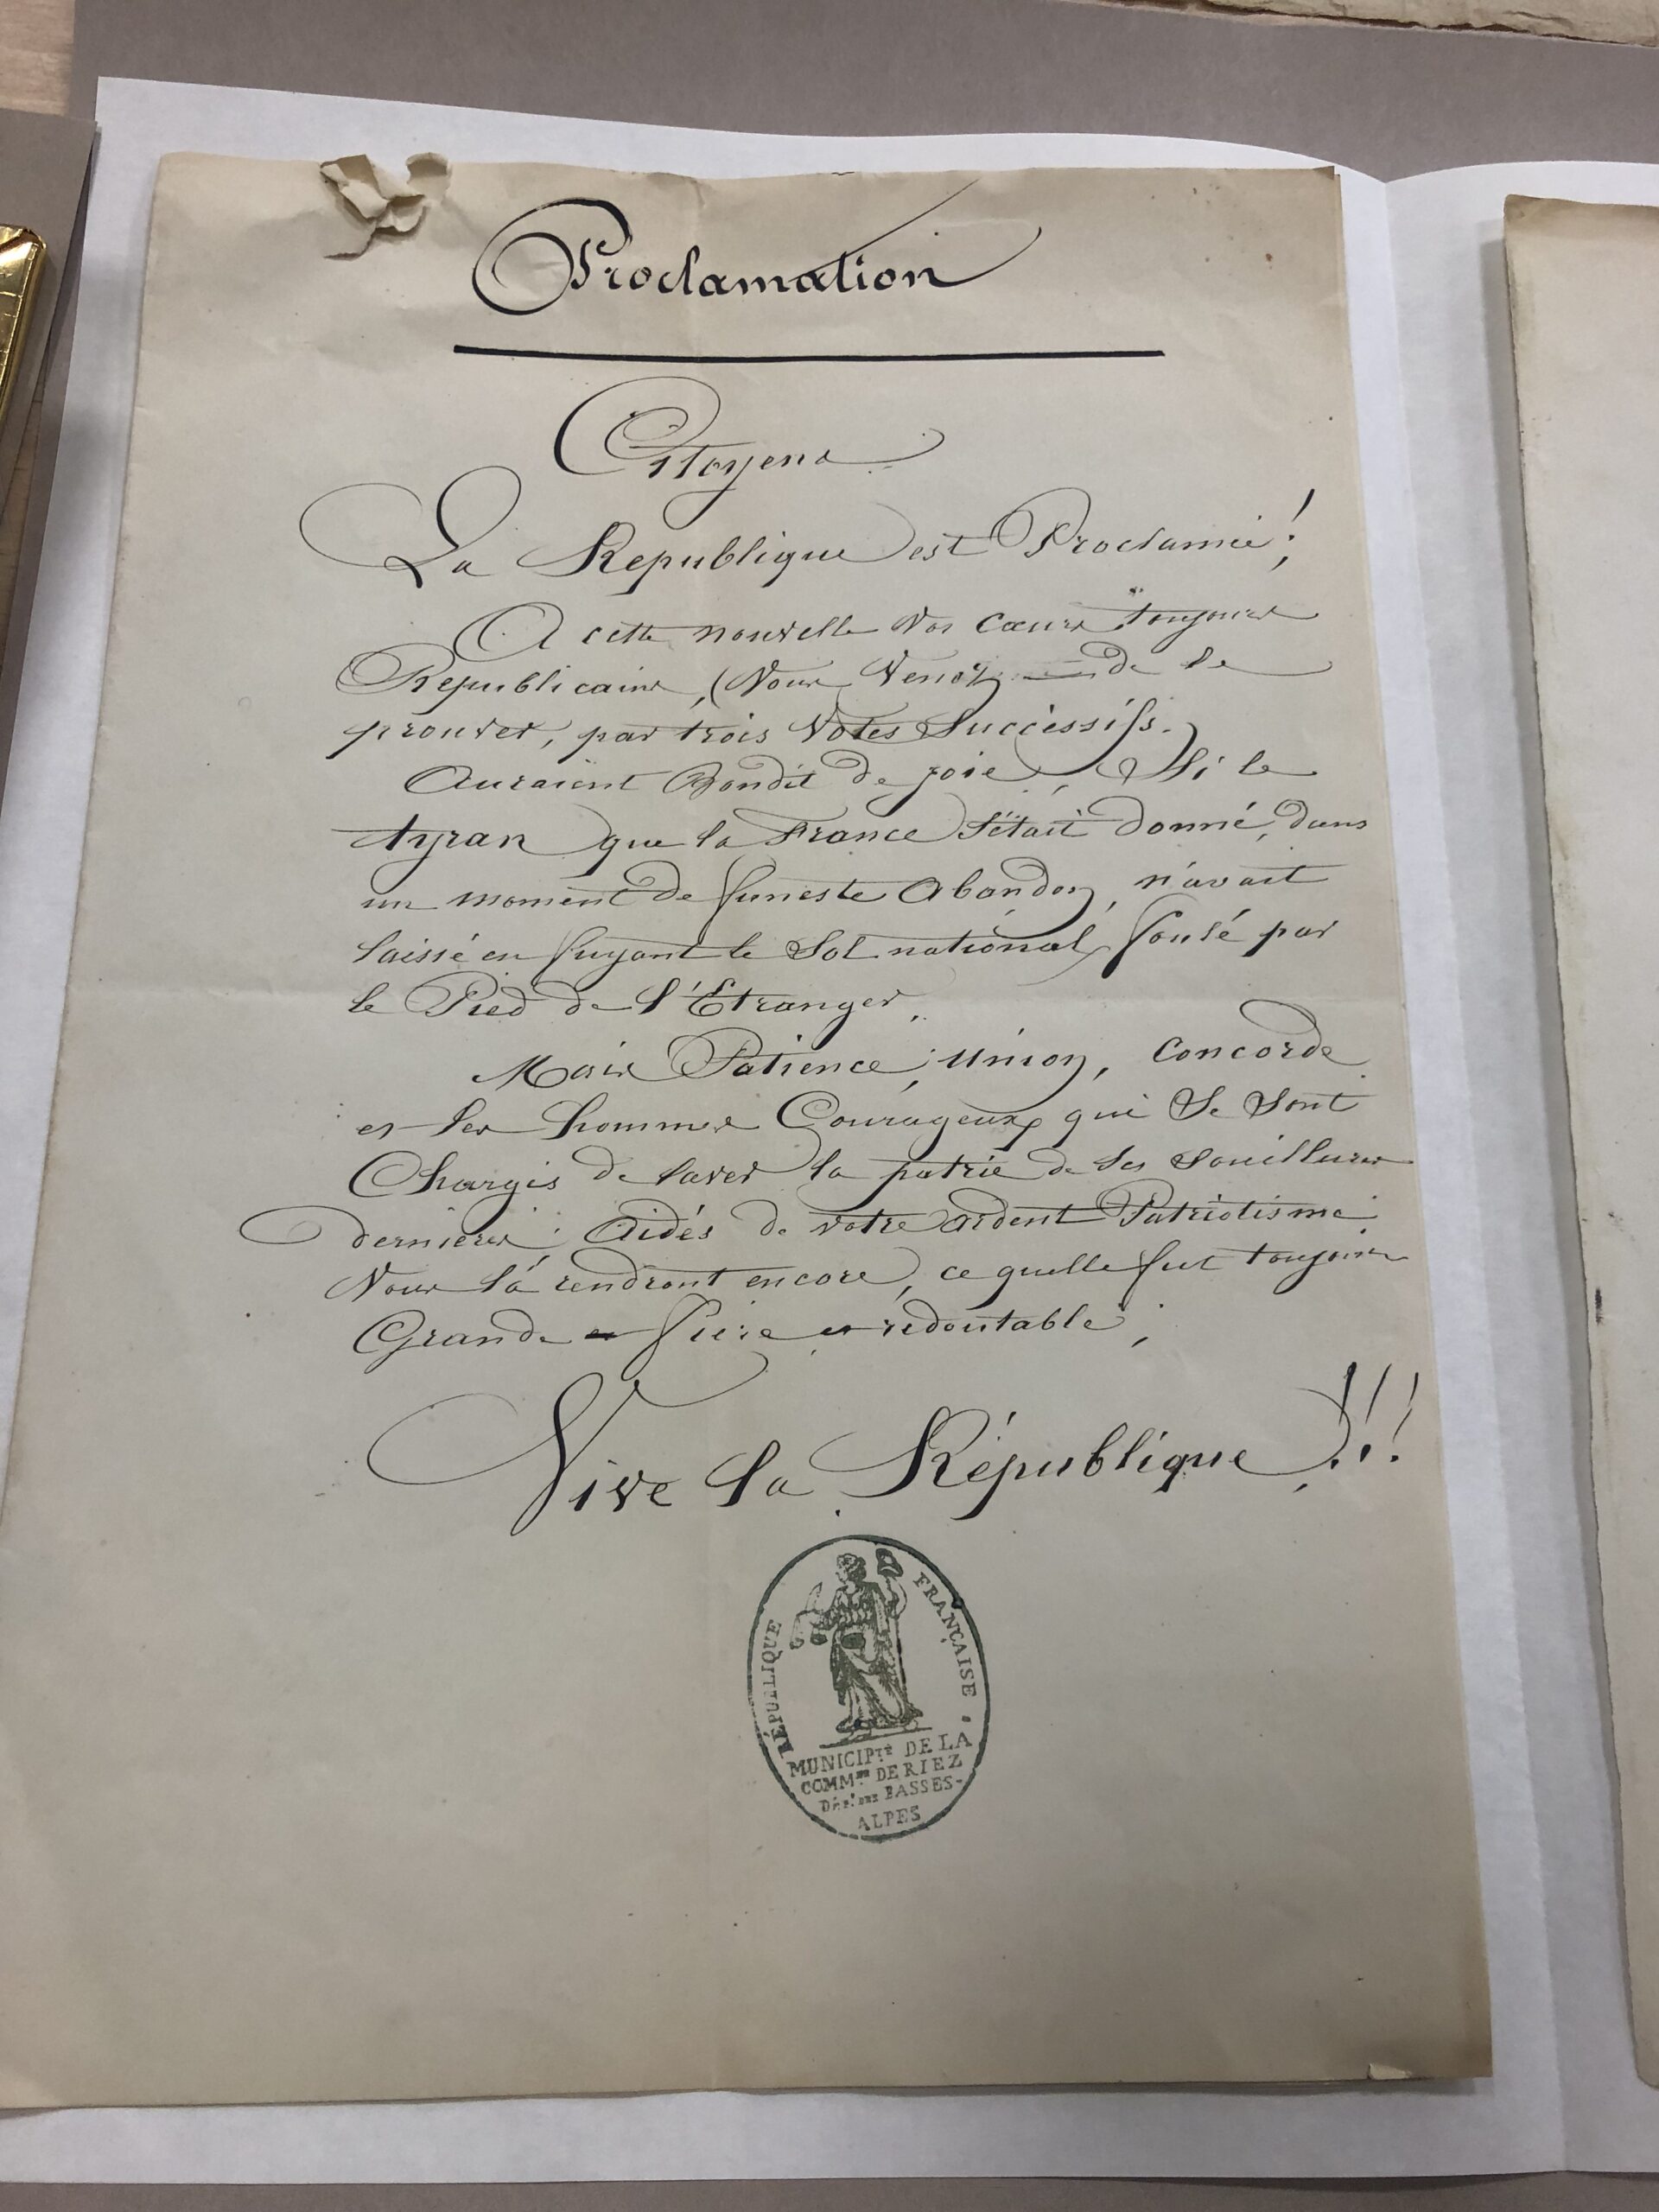 Proclamation
Citoyens
La Republique est Proclamée !
A cette nouvelle Vos Cœurs toujours
Republicains, (Vous Venez de le
prouver, par trois Votes Successifs.)
Auraient Bondit de joie, Si le
tyran que la France S'était donné, dans
un moment de funeste Abandon, n'avait
laissé en fuyant le Sol national, foulé par
le Pied de l'Etranger.
Mais Patience, Union, Concorde
et les hommes Courageux qui Se Sont
Chargés de laver la patrie de Ses Souillures
dernières, Aidés de votre ardent Patriotisme
Nous la rendront encore, ce quelle fut toujours
Grande fière et redoutable,
Vive la République !!!
RÉPUBLIQUE FRANÇAISE
MUNICIPTÉ DE LA
COMMNE DE RIEZ
Dépt des BASSES-
ALPES